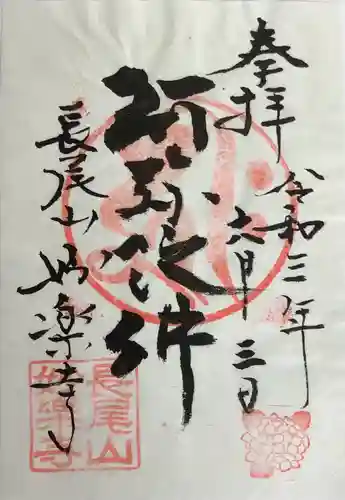 奉拝
令和三年
六月三日
阿弥陀佛
長尾山妙楽寺
長尾山
妙楽寺